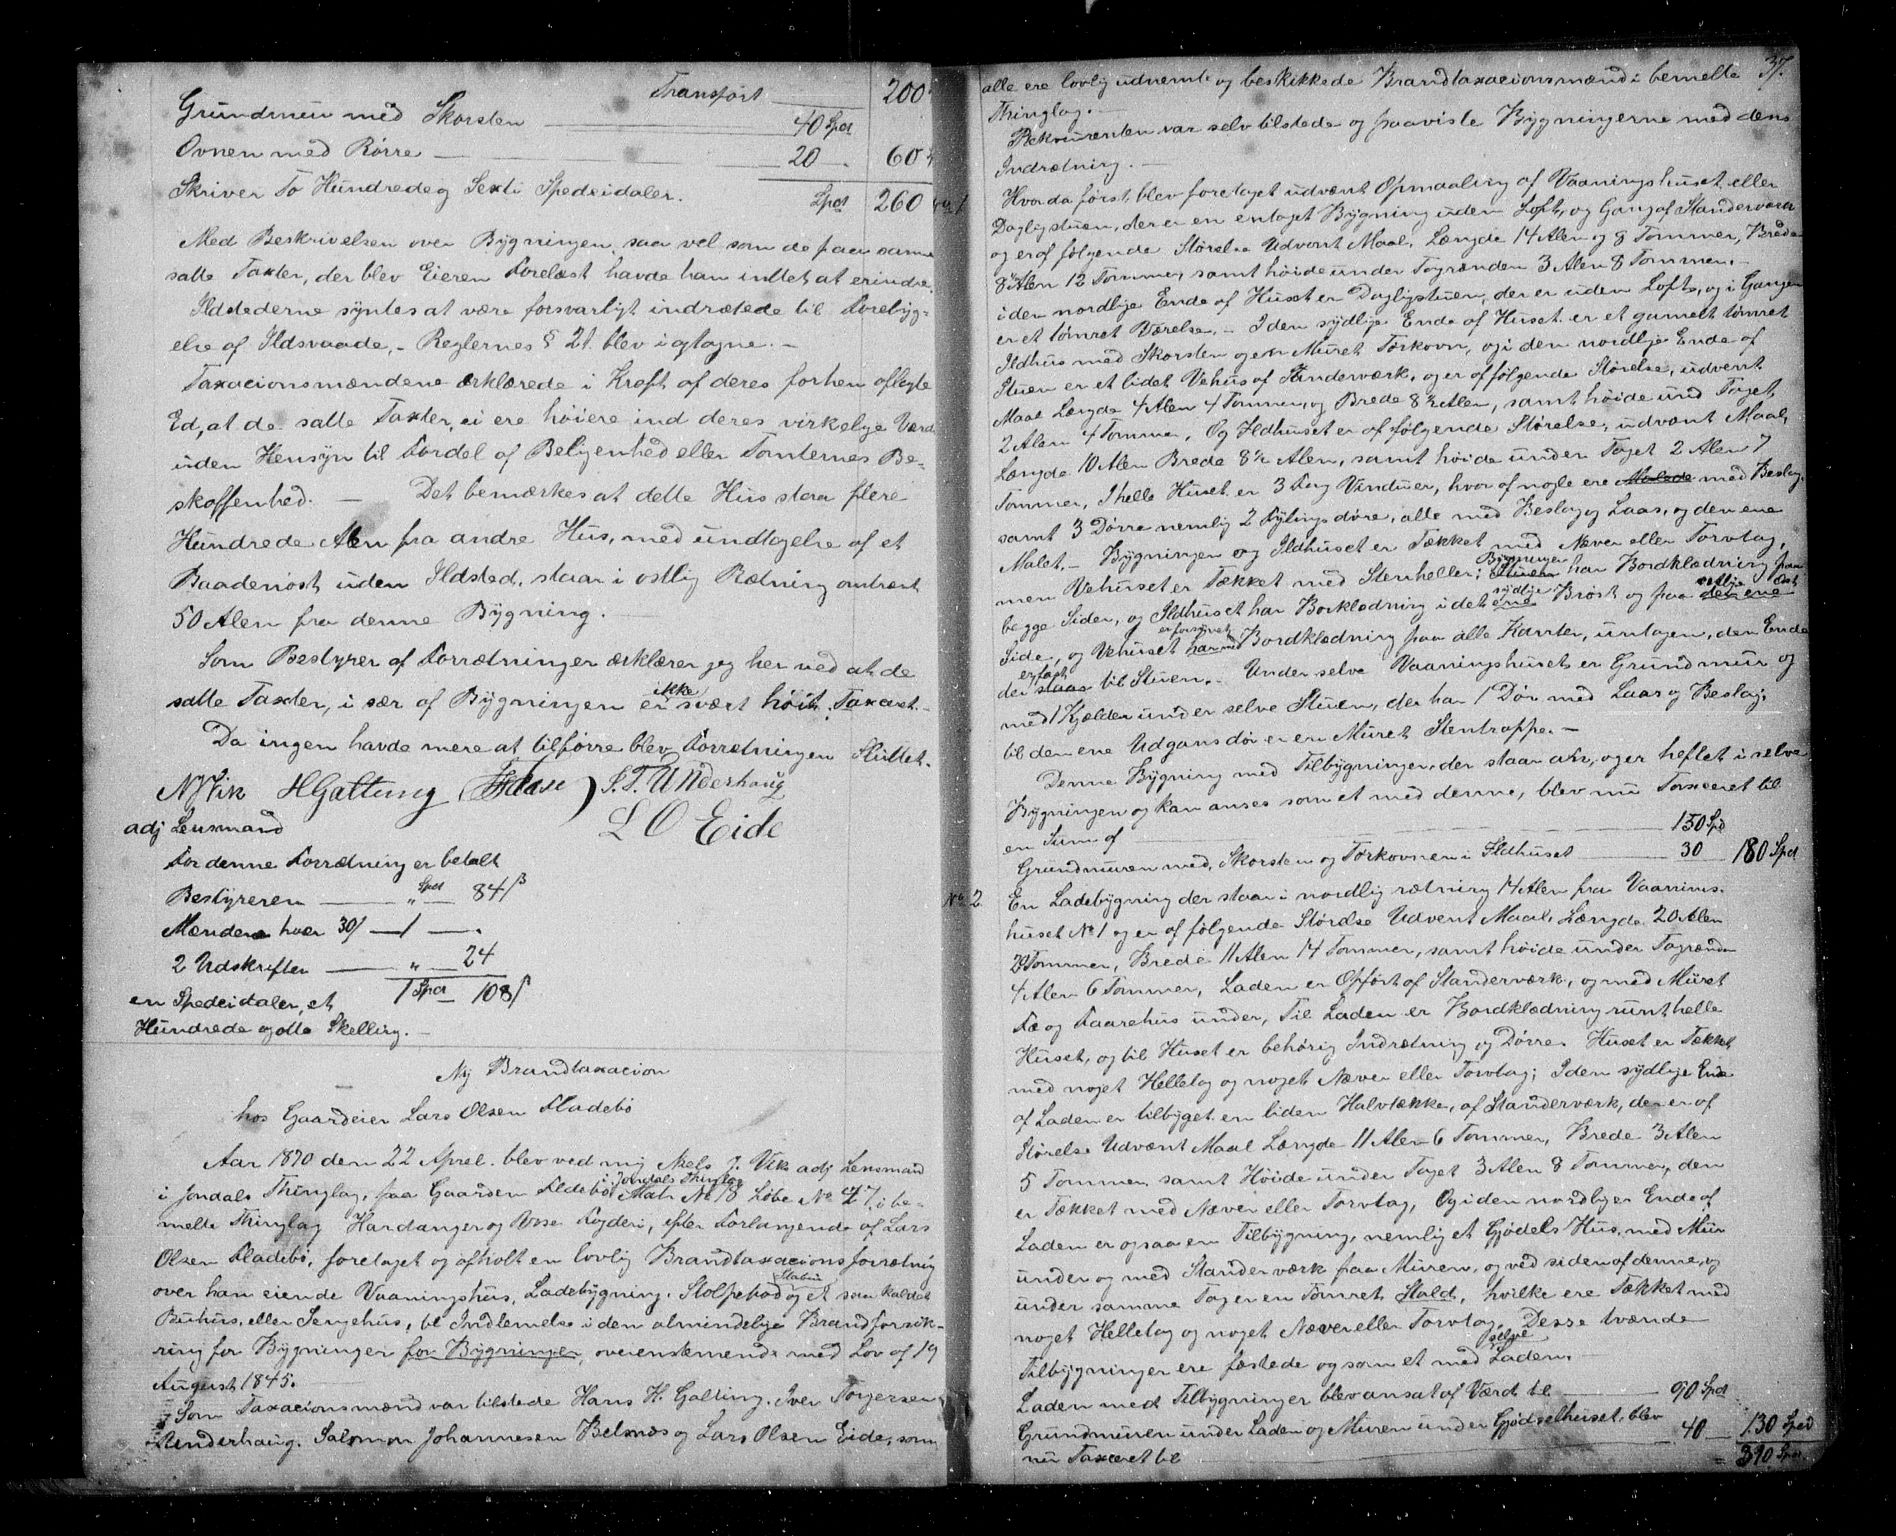 Transport 200
Grundmuu med Skorsten 40 Spd
Ovnen med Rörre 20 60
Skriver To Hundrede og Sexti Spedsidaler. Spd 260
Med Beskrivelsen over Bygningen, saa vel som de paa samme
satte Taxter, der blev Eieren Forelæst havde han intet at erindre.
Ildstederne syntes at være forsvarligt indrætede til Forebyg-
else af Ildsvaade, - Reglernes § 21. blev iagtagne. -
Taxacionsmændene ærklærede i Kraft af deres forhen aflagte
Ed, at de satte Taxter, ei ere höiere ind deres virkelige Værd
uden Hensyn til Fordel af Beligenhed eller Tomternes Be-
skaffenhed. - Det bemærkes at dette Hus staa flere
Hundrede Alen fra andre Hus, med undtagelse af et
Baadenöst uden Ildsted, staar i ostlig Rætning omtrent
50 Alen fra denne Bygning.
Som Bestyrer af Forrætninger ærklærer jeg her ved at de
satte Taxter, i sær af Bygningen er ikke svært höit Taxeret. -
Da ingen havde mere at tilförre blev Forrætningen Sluttet.
N J Vik H Galtung S. T. Underhaug
adj Lensmand L O Eide
For denne Forrætning er betalt
Bestyreren Spd " 84 ß
Mændene hver 30 ß 1 - .
2 Udskrifter " 24
en Spedsidaler, et 1 Spd 108 ß
Hundrede og otte Skelling. -
Ny Brandtaxacion
hos Gaardeier Lars Olsen Fladebö
Aar 1870 den 22 April. blev ved mig Niels J. Vik adj Lensmand
i Jondals Thinglag, paa Gaarden Fladebö i Jondals Thinglag Matr No 18 Löbe No 47, i be-
melte Thinglag Hardanger og Vose Fogderi, efter Forlangende af Lars
Olsen Fladebö, foretaget og afholt en lovlig Brandtaxacions forrætning
over han eiende Vaaningshus, Ladebygning. Stolpebod Stabur og et saa kaldet
Buhus, eller Sengehus, til Indlemelse i den almindelige Brandforsik-
ring for Bygninger for Bygninger, overenstemende med Lov af 19
August 1845.
Som Taxacionsmænd var tilstede Hans H. Galtung. Iver Torgersen
Underhaug. Salomon Johannesen Belsnæs og Lars Olsen Eide, som
alle ere lovlig udnemte og beskikkede Brandtaxacionsmænd i bemelte 37.
Thinglag. -
Rekvirænten var selv tilstede og paaviste Bygningerne med dens
Indrætning. -
Hvorda först blev foretaget udvent Opmaaling af Vaaningshuset eller
Dagligstuen, der er en entaget Bygning uden Loft, og Gang af Standerværk
og er af fölgende Störelse Udvent Maal, Længde 14 Alen og 8 Tommer, Brede
8 Alen 12 Tommer, samt höide under Tagrænden 3 Alen 8 Tommer. -
i den nordlige Ende af Huset er Dagligstuen, der er uden Lofte, og i Gangen
er et tömret Værelse. - I den sydlige Ende af Huset er et gamelt tömret
Ildhus med Skorsten og en Muret Törkovn, og i den nordlige Ende af
Stuen er et lidet Vehus af Standerværk, og er af fölgende Störelse, udvent
Maal Længde 4 Alen 4 Tommer, og Brede 8 ½ Alen, samt höide und Taget
2 Alen 4 Tommer, Og Ildhuset er af fölgende Störelse, udvent Maal,
Længde 10 Alen Brede 8 ½ Alen, samt höide under Taget 2 Alen 7
Tommer, I helle Huset er 3 Fag Vinduer, hvor af nogle ere Malede med Beslag,
samt 3 Dörre nemlig 2 Fylings döre, alle med Beslag og Laas, og den ene
Malet. - Bygningen og Ildhuset er Tækket med Næver eller Torvtag,
men Vehuset er Tækket med Stenheller; Stuen Bygningen har Bordklædning paa
begge Sider, og Ildhuset har Borklædning i det ene sydlige Bröst og paa det ene östlige
Side, og Vehuset har med er forsynet Bordklædning paa alle Kanter, untagen, den Ende
der staar er fast til Stuen. - Under selve Vaaningshuset er Grundmur og
med 1 Kjelder under selve Stuen, der har 1 Dör med Laas og Beslag;
til den ene Udgansdör er en Muret Stentrappe. -
Denne Bygning med Tilbygninger, der staar og er heftet i selve
Bygningen og kan anses som et med denne, blev nu Taxæret til
en Sum af 150 Spd
Grundmuren med, Skorsten og Törkovnen i Ildhuset 30 180 Spd
No 2 En Ladebygning der staar i nordlig rætning 14 Alen fra Vaanings-
huset No 1 og er af fölgende Störelse Udvent Maal, Længde 20 Alen
Tommer, Brede 11 Alen 14 Tommer, samt höide under Tagrænden
4 Alen 6 Tommer, Laden er Opfört af Standerværk, og med Muret
Fæ og Faarehus under, Til Laden er Bordklædning runt helle
Huset, og til Huset er behörig Indrætning og Dörre. Huset er Tækket
med noget Helletag og noget Næver eller Torvtag; I den sydlige Ende
af Laden er tilbyget en liden Halvtække, af Standerværk, der er af
Störelse Udvænt Maal Længde 11 Alen 6 Tommer, Brede 3 Alen
5 Tommer, samt Höide under Taget 3 Alen 8 Tommer, den
er Tækket med Næver eller Torvtag, Og i den nordlige Ende af
Laden er ogsaa en Tilbygning, nemlig et Gjödels Hus, med Mur
under og med Standerværk paa Muren, og ved siden af denne, og
under samme Tag er en Tömret Stald, hvilke ere Tækket med
noget Helletag og noget Næver eller Torvtag, Desse tvænde
Tilbygninger ere fæstede og som et med selve Laden. -
Laden med Tilbygninger blev ansat af Værd til 90 Spd
Grundmuren under Laden og Muren under Gjödselhuset, blev
nu Taxæret til 40 130 Spd
310 Spd